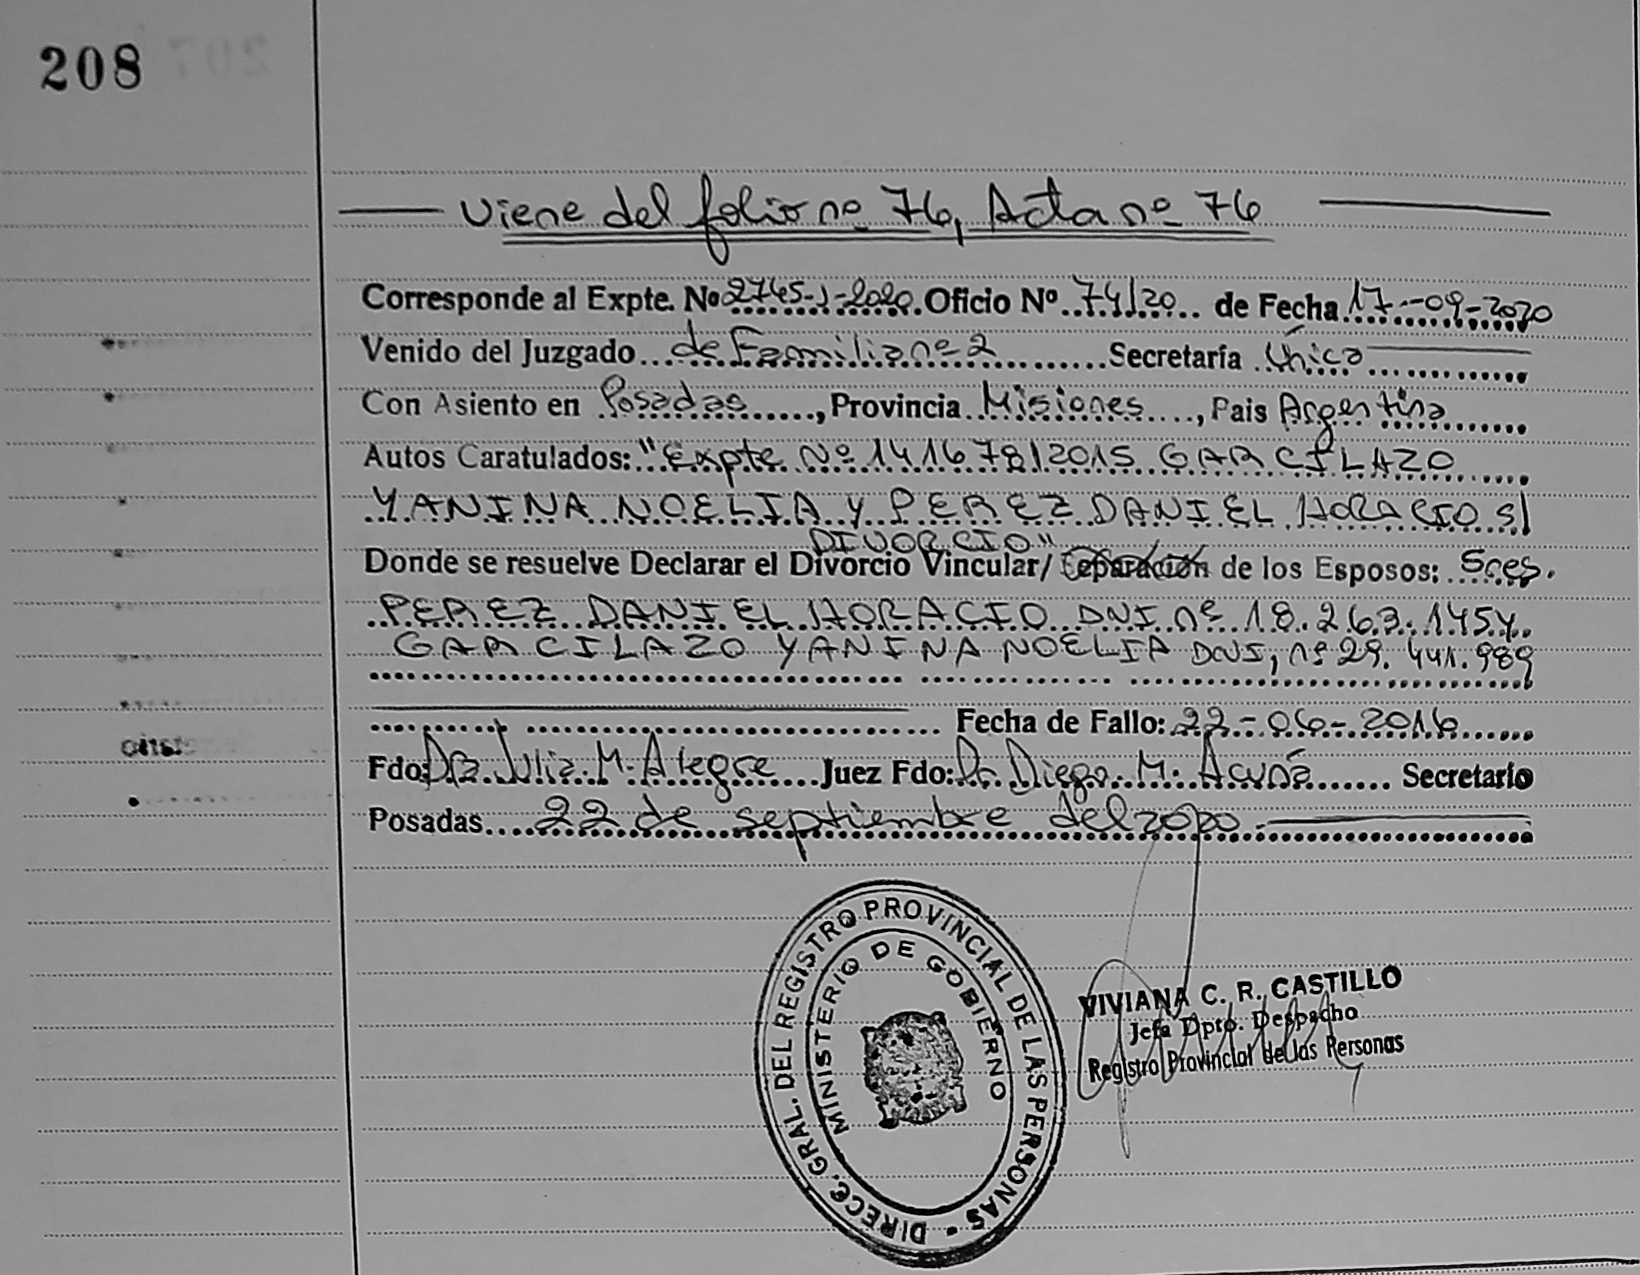 208
Viene del folio nº 76, Acta nº 76
Corresponde al Expte. Nº 2745-J-2020. Oficio Nº 74/20 de Fecha 17-09-2020
Venido del Juzgado de Familia nº 2 Secretaría Única
Con Asiento en Posadas, Provincia Misiones, Pais Argentina
Autos Caratulados: "Expte Nº 141678/2015 GARCILAZO
YANINA NOELIA Y PEREZ DANIEL HORACIO S/
DIVORCIO"
Donde se resuelve Declarar el Divorcio Vincular/ Separación de los Esposos: Sres.
PEREZ DANIEL HORACIO DNI nº 18.263.145 y
GARCILAZO YANINA NOELIA DNI, nº 29.441.989
Fecha de Fallo: 22-06-2016
Fdo: Dra. Julia M. Alegre Juez Fdo: Dr. Diego M. Acuña Secretario
Posadas 22 de septiembre del 2020.
DIRECC. GRAL. DEL REGISTRO PROVINCIAL DE LAS PERSONAS
MINISTERIO DE GOBIERNO
VIVIANA C. R. CASTILLO
Jefa Dpto. Despacho
Registro Provincial de las Personas